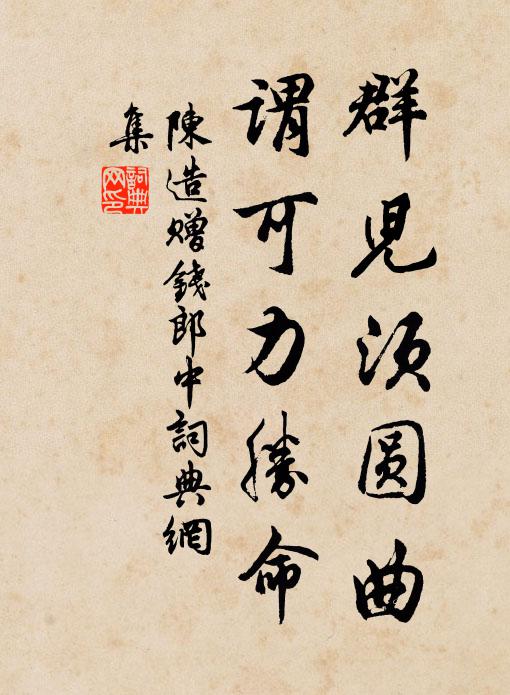 群児須圓曲
謂可力勝命
陳造贈錢郎中詞典網
集
詞典
网印